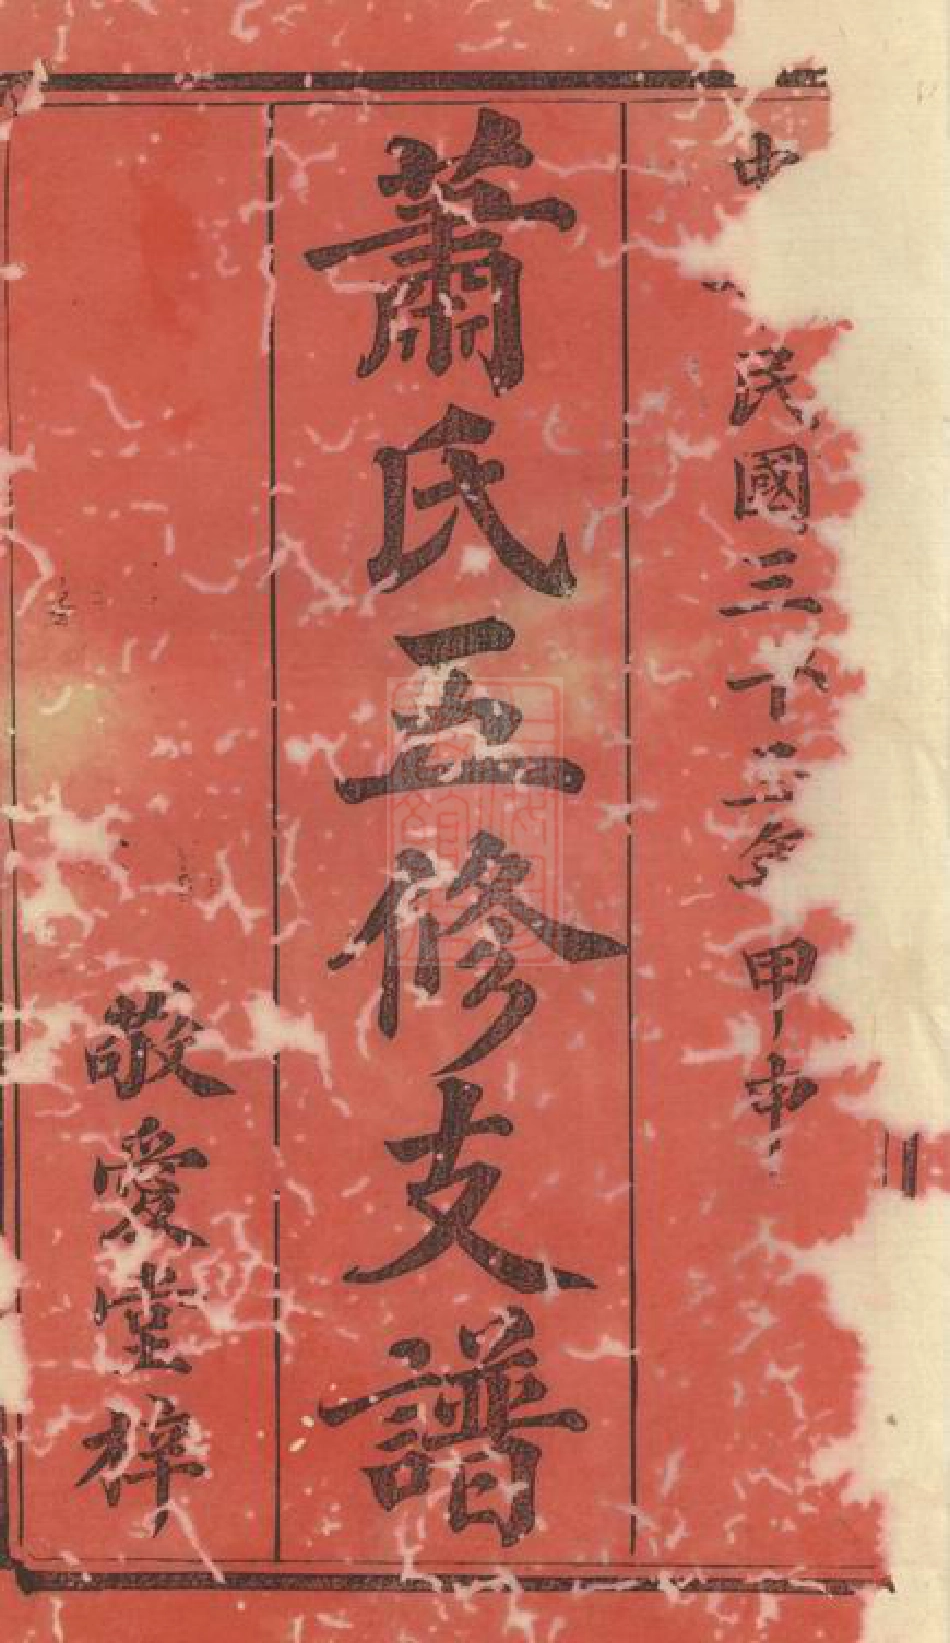 中民國三十三年 甲申
蕭氏五修支譜
敬愛堂梓